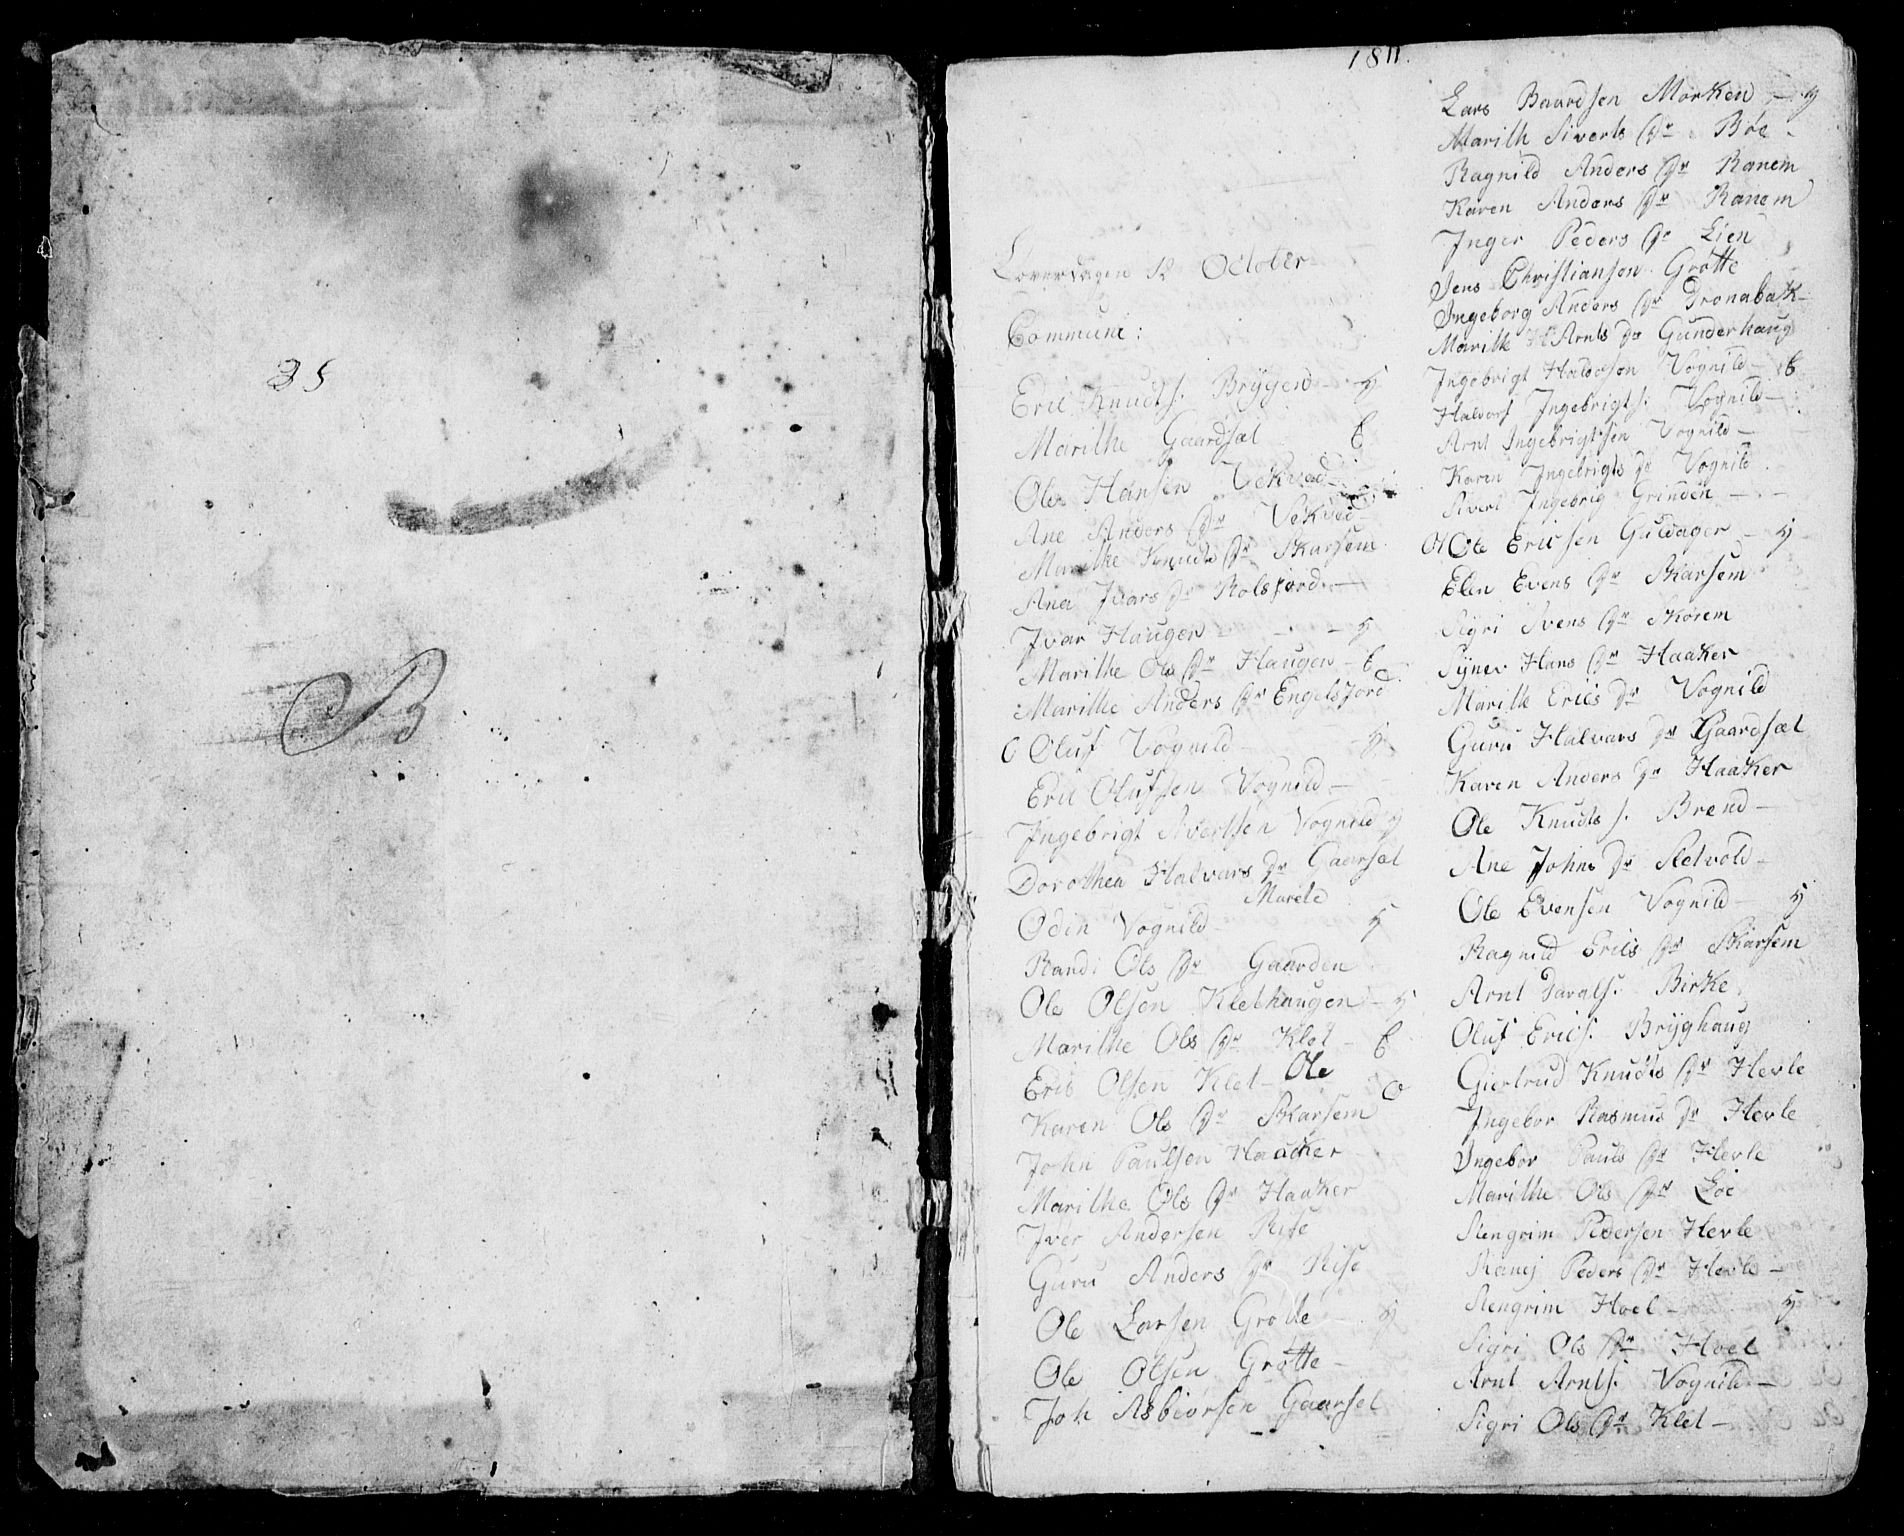 35
B
1811.
Löverdagen 12 October
Communi:
Eric Knudts. Bryggen - 4
Marithe Gaardsæl 6
Ole Hansen Vekved
Ane Anders Dr Vekved
Marithe Knudts Dr Skarsem
Ana Ivars Dr Rolsjord -
Ivar Haugen - 4
Marithe Ols Dr Haugen - 6
Marithe Anders Dr Engelsjord
O Oluf Vognild - 4
Eric Olufsen Vognild -
Ingebrigt Sivertsen Vognild 4
Dorothea Halvars Dr Gaarsæl
Marete
Odin Vognild - 4
Randi Ols Dr Gaarden
Ole Olsen Klethaugen - 4
Marithe Ols Dr Klet - 6
Eric Olsen Klet - Ole
Karen Ols Dr Skarsem
John Paulsen Haacker
Marithe Ols Dr Haaker
Iver Andersen Rise
Guru Anders Dr Rise
Ole Larsen Grøtte - 4
Ole Olsen Grøtte -
Joh Asbiörsen Gaarsel
Lars Baardsen Morken - 4
Marith Siverts Dr Böe -
Ragnild Anders Dr Ranem
Karen Anders Dr Ranem
Inger Peders Dr Lien
Jens Christiansen Grøtte
Ingeborg Anders Dr Dronabak -
Marith Arnts Dr Gunderhaug
Ingebrigt Halvorsen Vognild - 6
Halvors Ingebrigts. Vognild -
Arnt Ingebrigtsen Vognild -
Karen Ingebrigts Dr Vognild
Sivert Ingebrig Grinden -
Ol Ole Ericsen Guldager - 4
Elen Evens Dr Skarsem
Sigri Svens Dr Skörem
Synev Hans Dr Haaker
Marith Erics Dr Vognild
Guru Halvars Dr Gaardsæl
Karen Anders Dr Haaker
Ole Knudts. Brend -
Ane Johns Dr Sletvold -
Ole Evensen Vognild - 4
Ragnild Erics Dr Skarsem
Arnt Baralts. Birke
Oluf Erics. Bryghaug
Giertrud Knudts Dr Hevle
Ingebor Rasmus Dr Hevle
Ingebor Pauls Dr Hevle
Marithe Ols Dr Löe
Stengrim Pedersen Hevle
Ranej Peders Dr Hevle -
Stengrim Hoel - 4
Sigri Ols Dr Hoel
Arnt Arnts. Vognild -
Sigri Ols Dr Klet -